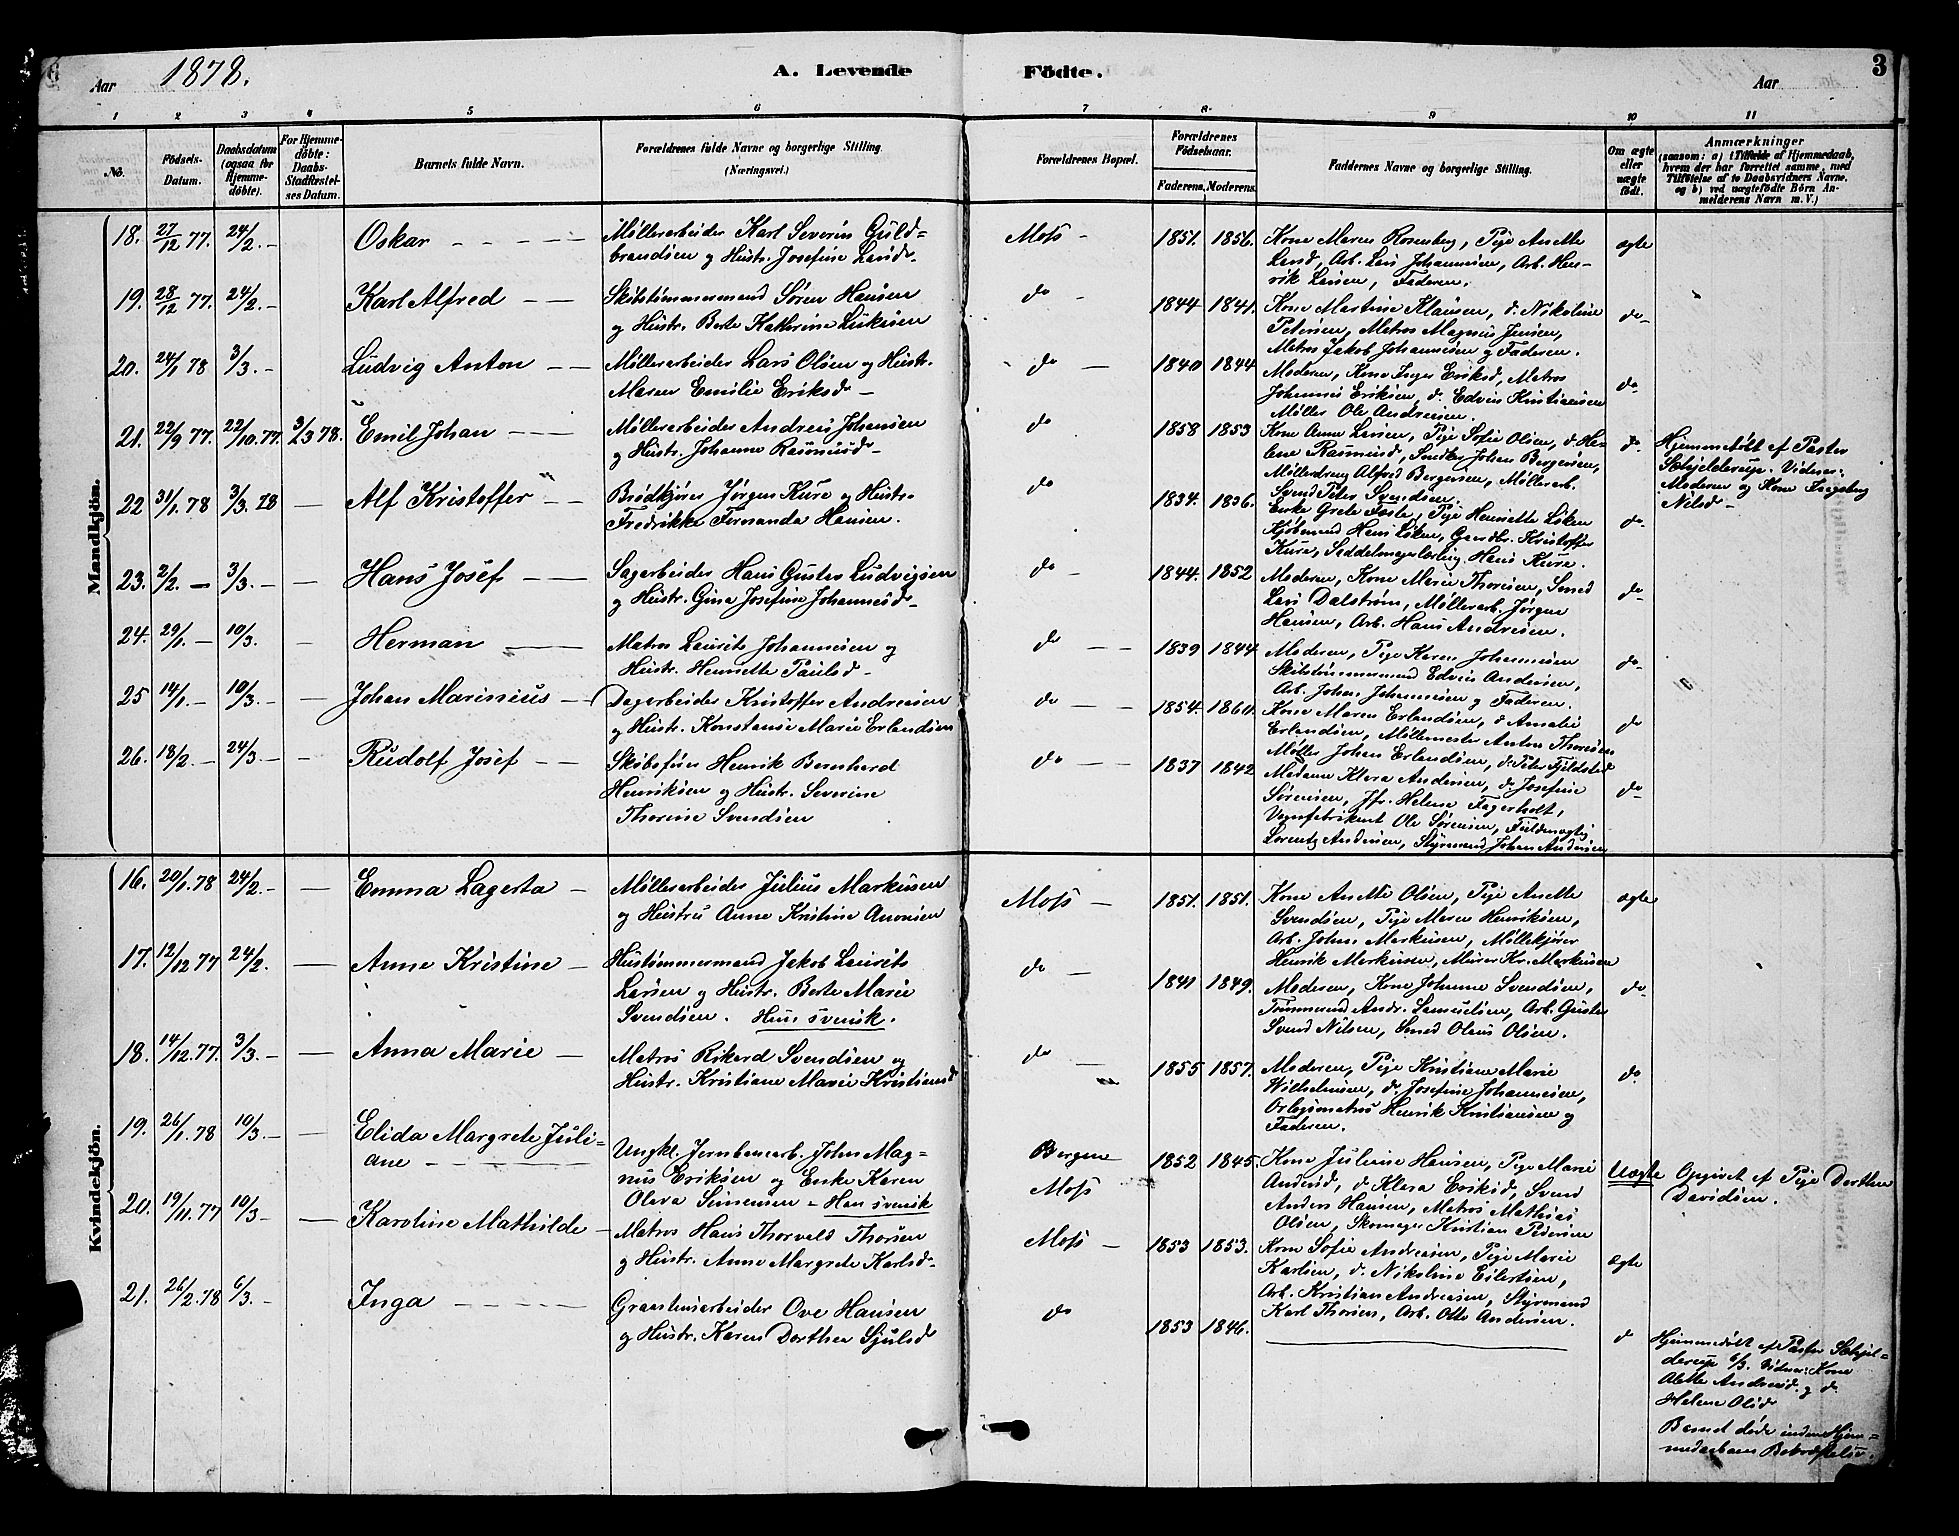 Aar 1878. A. Levende Födte. Aar 3
1 2 3 4 5 6 7 8 9 10 11
No. Födsels-Datum. Daabsdatum (ogsaa for Hjemmedöbte). For Hjemmedöbte: Daabs-Stadfæstelses Datum. Barnets fulde Navn. Forældrenes fulde Navne og borgerlige Stilling. (Næringsvei.) Forældrenes Bopæl. Forældrenes Födselsaar. Faderens. Moderens. Faddernes Navne og borgerlige Stilling. Om ægte eller uægte födt. Anmærkninger (saasom: a) i Tilfælde af Hjemmedaab, hvem der har forrettet samme, med Tilföielse af to Daabsvidners Navne, og b) ved uægtefödte Börn Anmelderens Navn m. V.)
Mandkjön.
18. 27/12 77. 24/2. - Oskar
Møllerarbeider Karl Severin Guld=
brandsen g Hustr. Josefine Lands.
Moss - 1851. 1856.
Kone Maren Rosenberg, Pige Anette
Land, Arb. Lars Johannesen, Arb. Hen-
rik Larsen, Faderen.
ægte
19. 28/12 77. 24/2. - Karl Alfred
Skibstømmermand Søren Hansen
g Hustr. Berte Kathrine
do - 1844. 1841.
Kone Martine Klausen, d. Nikoline
Petersen, Matros Magnus Jensen,
Matros Jakob Johannesen g Faderen.
do
20. 24/1 78 3/3. - Ludvig Anton
Møllerarbeider Lars Olsen g Hustr.
Maren Emilie Eriksd -
do - 1840 1844
Moderen, Kone Inger Eriksd, Matros
Johannes Eriksen, d. Edvin Kristiansen
Møller Ole Andresen.
do
21. 22/9 77. 22/10. 77. 3/3 78. Emil Johan
Møllerarbeider Andreas Johansen
g Hustr. Johanne Rasmusd -
do 1858 1853
Kone Anne Larsen, Pige Sofie Olsen, d. He-
lene Rasmusd, Johan Bergersen,
Møllerdreng Alfred Bergersen, Møllerarb.
Svend Peter Svendsen.
do
Hjemmedøbt af Pastor
Schjelderup. Vidner:
Moderen og Kone Ingeborg
Nilsd -
22 31/1. 78 3/3. 78 - Alf Kristoffer
Brødkjører Jørgen Kure g Hustr.
Fredrikke Fernanda Hansen.
do 1834. 1836.
Enke Grete Faste, Pige Henriette Løken
Kjøbmand Hans Løken, Gaardbr. Kristoffer
Kure, Sadelmagerlærling Hans Kure.
do
23. 2/2. - 3/3. - Hans Josef
Sagarbeider Hans Gustav Ludvigsen
g Hustr. Gina Josefine Johannesd -
do - 1844. 1852
Moderen, Kone Marie Thoresen, Smed
Lars Dalstrøm, Møllerarb. Jørgen
Hansen, Arb. Hans Andresen.
do
24. 29/1. - 10/3. - Herman
Matros Laurits Johannesen g
Hustr. Henriette Paulsd -
do - 1839 1844
Moderen, Pige Karen Johannesen
Skibstømmermand Edvin Andersen,
Arb. Johan Johannesen g Faderen.
do
25 14/1. - 10/3. - Johan Marinius
Dagarbeider Kristoffer Andreasen
g Hustr. Konstanse Marie Erlandsen
do - 1854. 1860.
Kone Maren Erlandsen, d. Amalie
Erlandsen, Møllermester Anton Thoresen
Møller Johan Erlandsen, d. Peter Fjeldstad
do
26. 18/2. - 24/3. - Rudolf Josef
Skibsfører Henrik Bernhard
Henriksen g Hustr. Severine
Thorine Svendsen
do - 1837 1842
Madame Klara Andersen, d. Josefine
Sørensen, Jfr. Helene Fagerholt,
Vognfabrikant Ole Sørensen, Fuldmægtig
Lorentz Andersen, Styrmand Johan Andersen
do
Kvindekjön.
16. 20/1. 78 24/2. - Emma Lagerta
Møllerarbeider Julius Markusen
g Hustru Anne Kristine Aronsen
Moss - 1851. 1851.
Kone Anette Olsen, Pige Anette
Svendsen, Pige Maren Henriksen,
Arb. Johan Markusen, Møllekjører
Henrik Markusen, Murer Kr. Markusen
ægte
17. 12/12 77 24/2. - Anne Kristine
Hustømmermand Jakob Laurits
Larsen g Hustr. Berte Marie
Svendsen. Hun svensk.
do - 1841 1849.
Moderen, Kone Johanne Svendsen,
Tømmermand Andr. Samuelsen, Arb. Gustav
Svend Nilsen, Smed Olaus Olsen.
do
18. 14/12. 77. 3/3. - Anna Marie
Matros Rikard Svendsen g
Hustr. Kristiane Marie Kristiansd
do 1855 1857.
Moderen, Pige Kristiane Marie
Wilhelmsen, d. Josefine Johannesen,
Orlogsmatros Henrik Kristiansen g
Faderen.
do
19. 26/1. 78 10/3. - Elida Margrete Juli-
ane
Ungkl. Jernbanearb. John Mag=
nus Eriksen g Enke Karen
Olava Simensen - Han svensk
Bergen
Moss 1852 1845.
Kone Juliane Hansen, Pige Marie
Andersd, d. Klara Eriksd, Svend
Anders Hansen, Matros Mathias
Olsen, Skomager Kristian Pedersen
Uægte
Opgivet af Pige Dorthea
Davidsen.
20. 19/11. 77 10/3 - Karoline Mathilde
Matros Hans Thorvald Thorsen
g Hustr. Anne Margrete Karlsd.
Moss - 1853 1853.
Kone Sofie Andreasen, Pige Marie
Karlsen, d. Nikoline Eilertsen,
Arb. Kristian Andreasen, Styrmand
Karl Thorsen, Arb. Otto Andersen.
ægte
21. 26/2. 78 6/3. - Inga
Graastensarbeider Ove Hansen
g Hustr. Karen Dorthea Sjulsd
do 1853 1846.
do
Hjemmedøbt af Pastor Schjel=
derup 6/3. Vidner: Kone
Alette Andreasd. g d.
Helene Olsd
Barnet døde inden Hjem=
medaabens Bekræftelse.